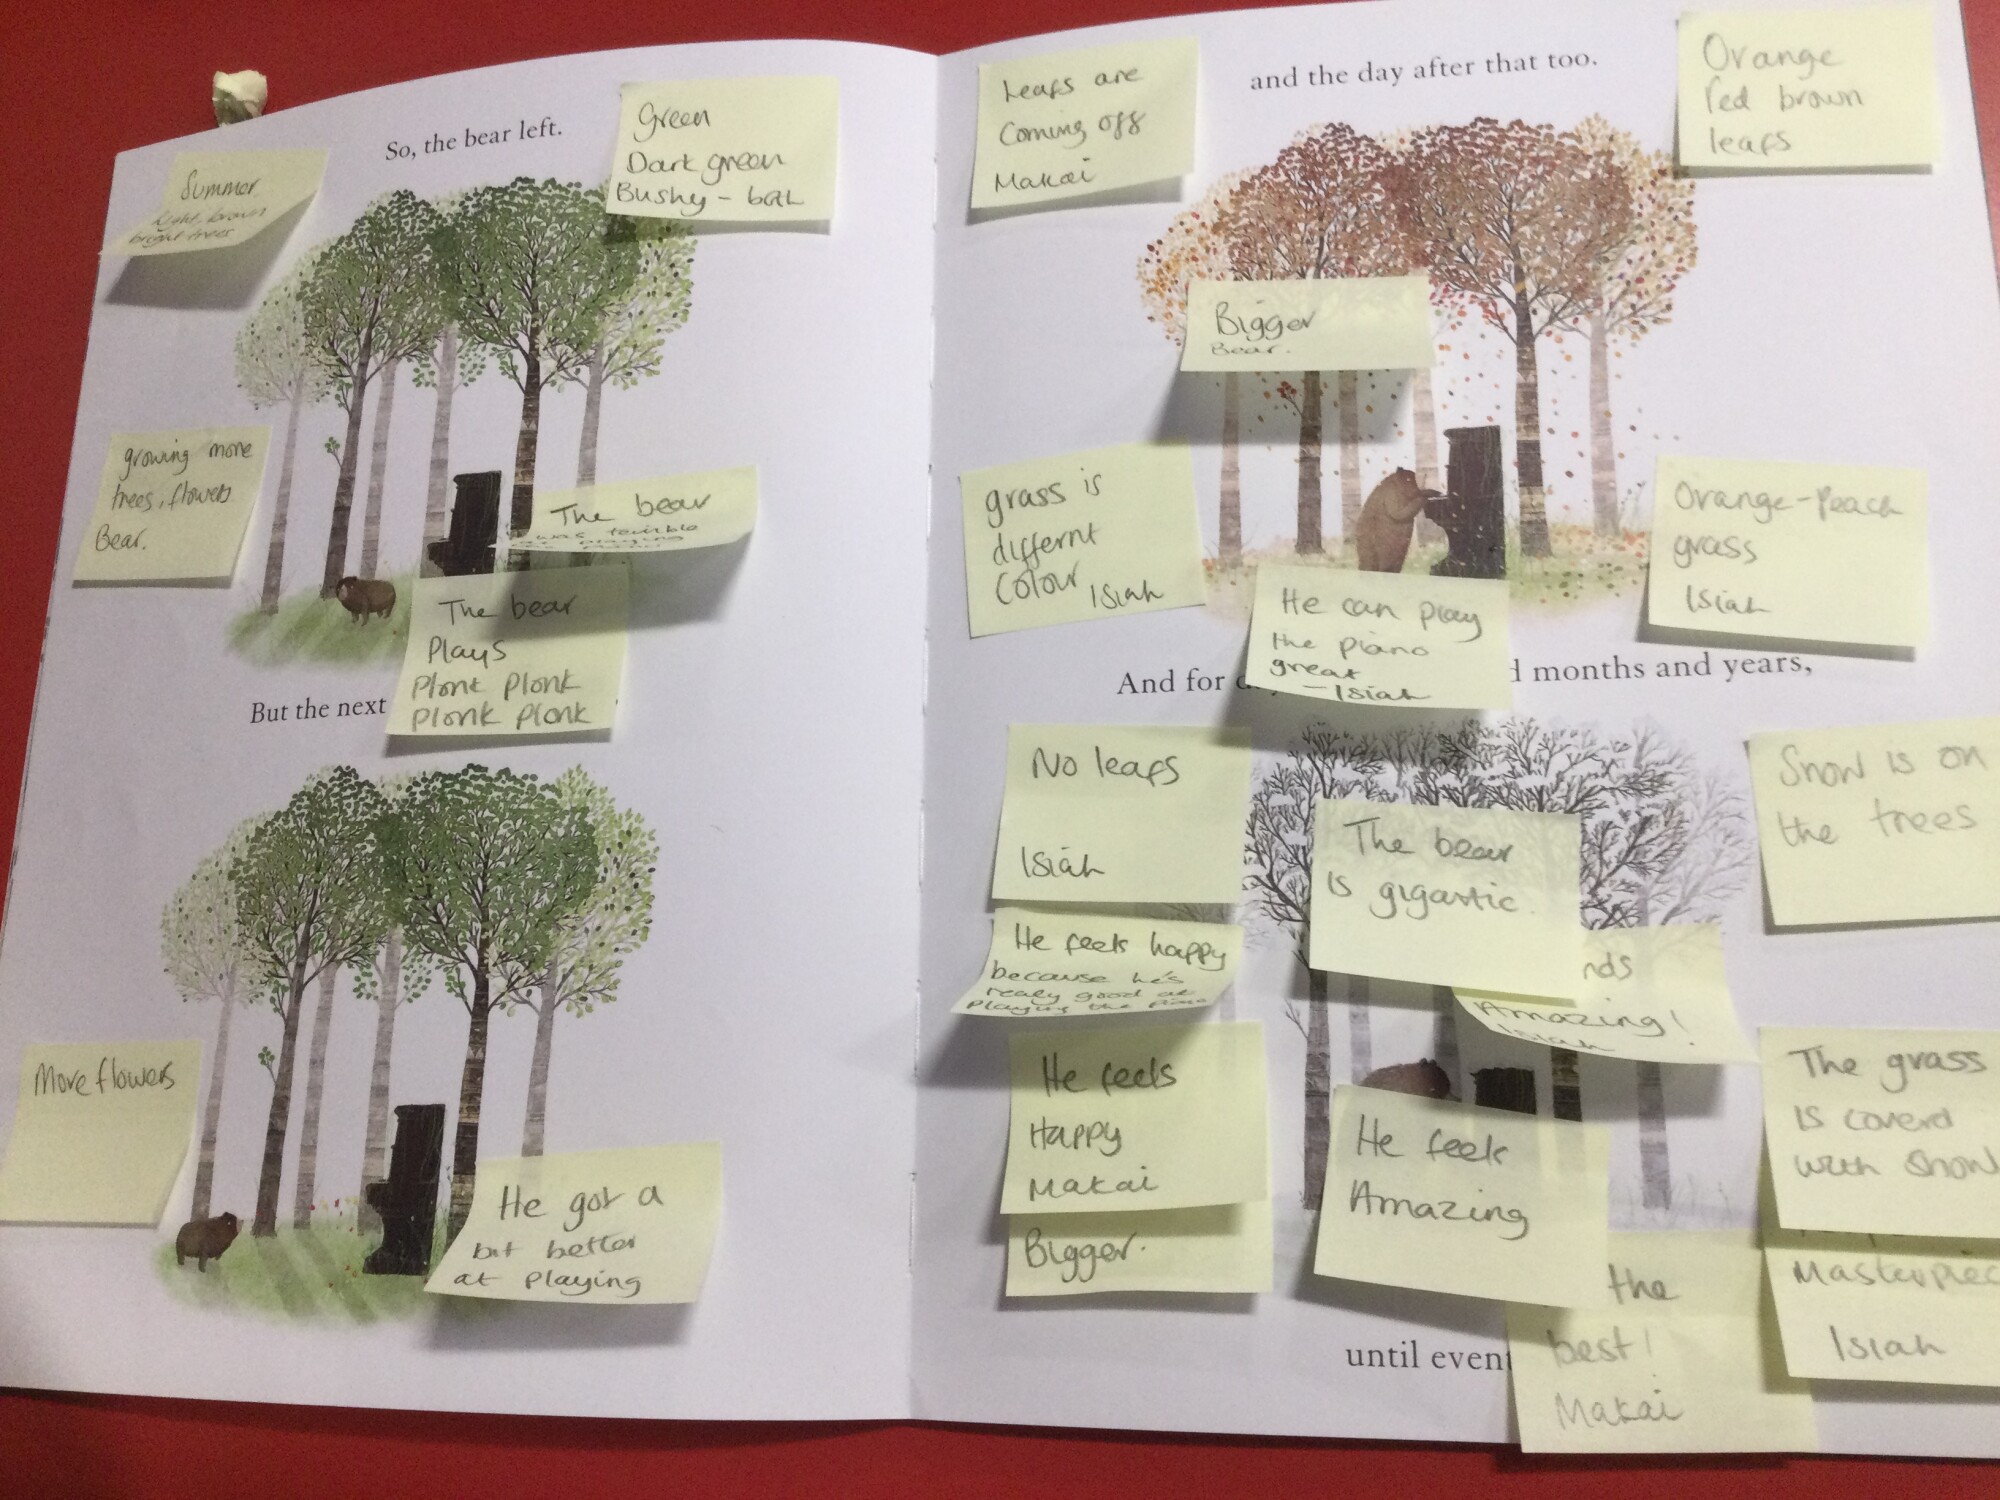 So, the bear left.
Summer
light brown
bright trees
Green
Dark green
Bushy - both
growing more
trees, flowers
Bear.
The bear
was terrible
playing
The bear
Plays
Plonk Plonk
Plonk Plonk
But the next
More flowers
He got a
bit better
at playing
and the day after that too.
Leafs are
Coming off
Makai
Orange
red brown
leafs
Bigger
Bear.
grass is
differnt
Colour Isiah
Orange-Peach
grass
Isiah
He can play
the piano
great
- Isiah
And for d
d months and years,
No leafs
Isiah
The bear
is gigantic.
Snow is on
the trees
He feels happy
because he's
realy good at
playing the piano
nds
Amazing!
Isiah
He feels
Happy
Makai
Bigger.
He feels
Amazing
The grass
is coverd
with snow
Masterpiec
Isiah
the
best!
Makai
until event